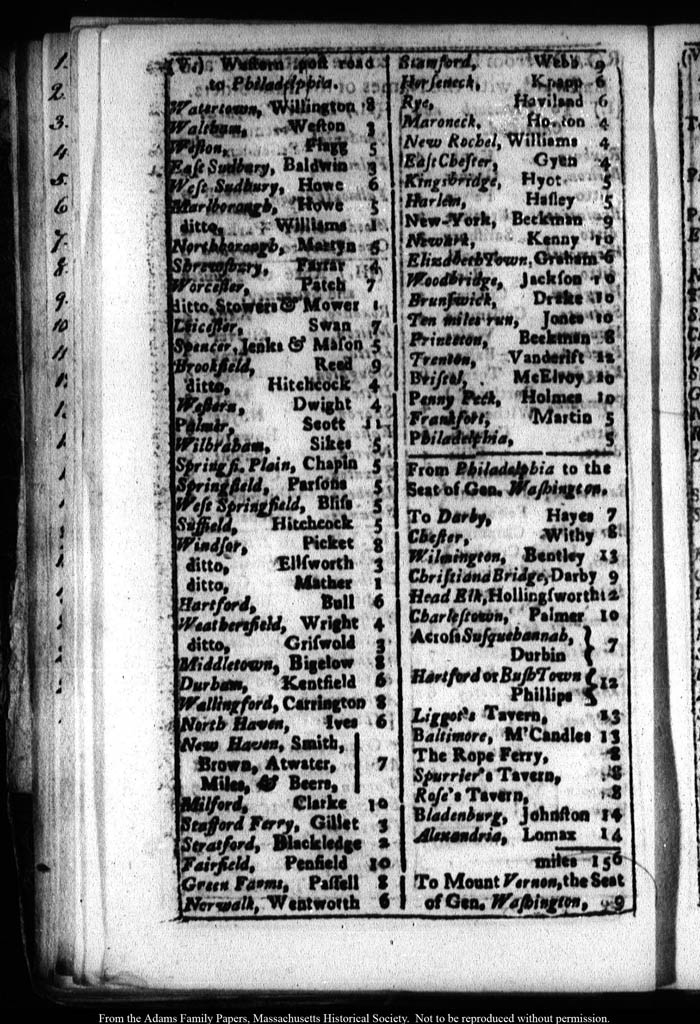 1.
2.
3.
4.
5.
6
7.
8.
9.
10
11
(Vi) Western post road
to Philadelphia.
Watertown, Willington 8
Waltham, Weſton 3
Weſton, Flagg 5
Eaſt Sudbury, Baldwin 3
Weſt Sudbury, Howe 6
Marlborough, Howe 5
ditto, Williams 1
Northborough, Martyn
Shrewſbury, Farrar 4
Worceſter, Patch 7
ditto, Stowers & Mower 1
Leiceſter, Swan 7
Spencer, Jenks & Maſon 5
Brookfield, Reed 9
ditto, Hitchcock 4
Weſtern, Dwight 4
Palmer, Scott 11
Wilbraham, Sikes 5
Springfi. Plain, Chapin 5
Springfield, Parſons 5
Weſt Springfield, Bliſs 5
Suffield, Hitchcock 5
Windſor, Picket 8
ditto, Ellſworth 3
ditto, Mather 1
Hartford, Bull 6
Weathersfield, Wright 4
ditto, Griſwold 3
Middletown, Bigelow 8
Durham, Kentfield 6
Wallingford, Carrington 8
North Haven, Ives 6
New Haven, Smith,
Brown, Atwater, 7
Miles, & Beers,
Milford, Clarke 10
Stafford Ferry, Gillet 3
Stratford, Blackledge 2
Fairfield, Penfield 10
Green Farms, Paſſell 8
Norwalk, Wentworth 6
Stamford, Webb 9
Horſeneck, Knapp 6
Rye, Haviland 6
Maroneck, Horton 4
New Rochel, Williams 4
Eaſt Cheſter, Gyen 4
Kingsbridge, Hyot 5
Harlem, Haſley 5
New-York, Beekman 9
Newark, Kenny 10
Elizabeth Town, Graham 6
Woodbridge, Jackſon 10
Brunſwick, Drake 10
Ten miles run, Jones 10
Princeton, Beekman 8
Trenton, Vanderiſt 12
Briſtol, McElroy 10
Penny Pack, Holmes 10
Frankfort, Martin 5
Philadelphia, 5
From Philadelphia to the
Seat of Gen. Waſhington.
To Darby, Hayes 7
Cheſter, Withy 8
Wilmington, Bentley 13
Chriſtiana Bridge, Darby 9
Head Elk, Hollingſworth 12
Charleſtown, Palmer 10
Acroſs Suſquehannah,
Durbin 7
Hartford or Buſh Town
Phillips 12
Liggot's Tavern, 13
Baltimore, M'Candles 13
The Rope Ferry, 8
Spurrier's Tavern, 8
Roſe's Tavern, 8
Bladenburg, Johnſton 14
Alexandria, Lomax 14
miles 156
To Mount Vernon, the Seat
of Gen. Waſhington, 9
From the Adams Family Papers, Massachusetts Historical Society. Not to be reproduced without permission.